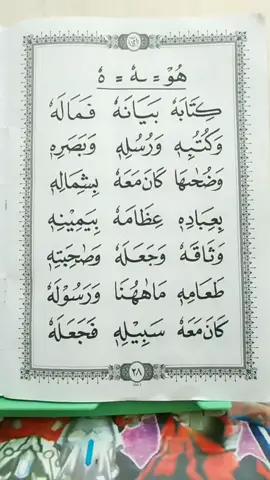 هُوْ = ـهٗ = هٗ
كِتَابَهٗ بَيَانَهٗ فَمَالَهٗ
وَكُتُبِهٖ وَرُسُلِهٖ وَبَصَرِهٖ
وَضُحٰىهَا كَانَ مَعَهٗ بِشِمَالِهٖ
بِعِبَادِهٖ عِظَامَهٗ بِيَمِيْنِهٖ
وَثَاقَهٗ وَجَعَلَهٗ وَصَاحِبَتِهٖ
طَعَامِهٖ مَاهٰهُنَا وَرَسُوْلَهٗ
كَانَ مَعَهٗ سَبِيْلِهٖ فَجَعَلَهٗ
٢٨